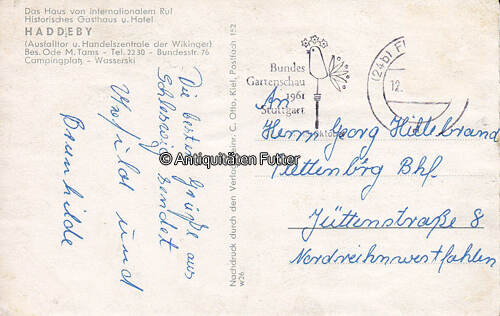 Das Haus von Internationalem Ruf
Historisches Gasthaus u. Hotel
HADDEBY
(Ausfalltor u. Handelszentrale der Wikinger)
Bes. Ode M. Tams - Tel. 2230 - Bundesstr. 76
Campingplatz - Wasserski
Die besten Grüße aus
Schleswig sendet
und
Brunhilde
Nachdruck durch den Verlag C. Otto, Kiel, Postfach 152
w26
Bundes
Gartenschau
1961
Stuttgart
(24b)
12.
An
Herrn Georg Hillebrand
Plettenbrg Bhf
Jüttenstraße 8
Nordreihnwestfahlen
© Antiquitäten Futter